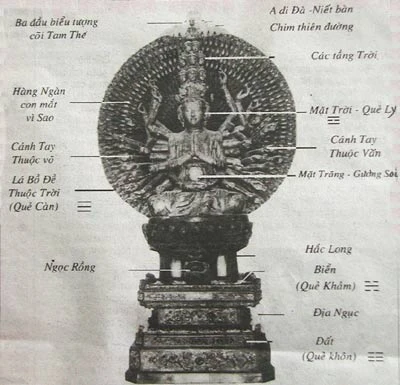 Ba đầu biểu tượng
cõi Tam Thế
A di Đà - Niết bàn
Chim thiên đường
Các tầng Trời
Hàng Ngàn
con mắt
vì Sao
Mặt Trời - Quẻ Ly
Cánh Tay
Thuộc võ
Cánh Tay
Thuộc Văn
Lá Bồ Đề
Thuộc Trời
(Quẻ Càn)
Mặt Trăng - Gương Soi
Hắc Long
Ngọc Rồng
Biển
(Quẻ Khảm)
Địa Ngục
Đất
(Quẻ khôn)